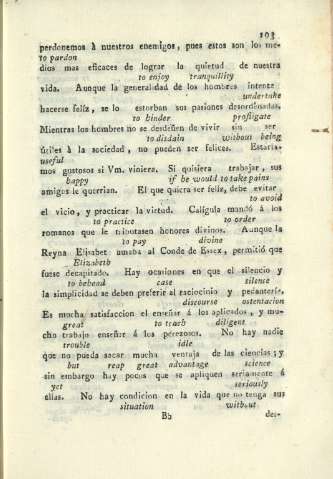 103
perdonemos à nuestros enemigos, pues estos son los me-
to pardon
dios mas eficaces de lograr la quietud de nuestra
to enjoy tranquillity
vida. Aunque la generalidad de los hombres intente
undertake
hacerse felíz, se lo estorban sus pasiones desordenadas.
to hinder profligate
Mientras los hombres no se desdeñen de vivir sin ser
to disdain without being
útiles à la sociedad, no pueden ser felices. Estaria-
useful
mos gustosos si Vm. viniera. Si quisiera trabajar, sus
happy if he would to take pains
amigos le querrian. El que quiera ser feliz, debe evitar
to avoid
el vicio, y practicar la virtud. Calígula mandó á los
to practice to order
romanos que le tributasen honores divinos. Aunque la
to pay divine
Reyna Elisabet amaba al Conde de Essex, permitió que
Elizabeth
fuese decapitado. Hay ocasiones en que el silencio y
to behead case silence
la simplicidad se deben preferir al raciocinio y pedantería.
discourse ostentacion
Es mucha satisfaccion el enseñar á los aplicados, y mu-
great to teach diligent
cho trabajo enseñar á los perezosos. No hay nadie
trouble idle
que no pueda sacar mucha ventaja de las ciencias; y
but reap great advantage science
sin embargo hay pocos que se apliquen seriamente á
yet seriously
ellas. No hay condicion en la vida que no tenga sus
situation without
Bb des-